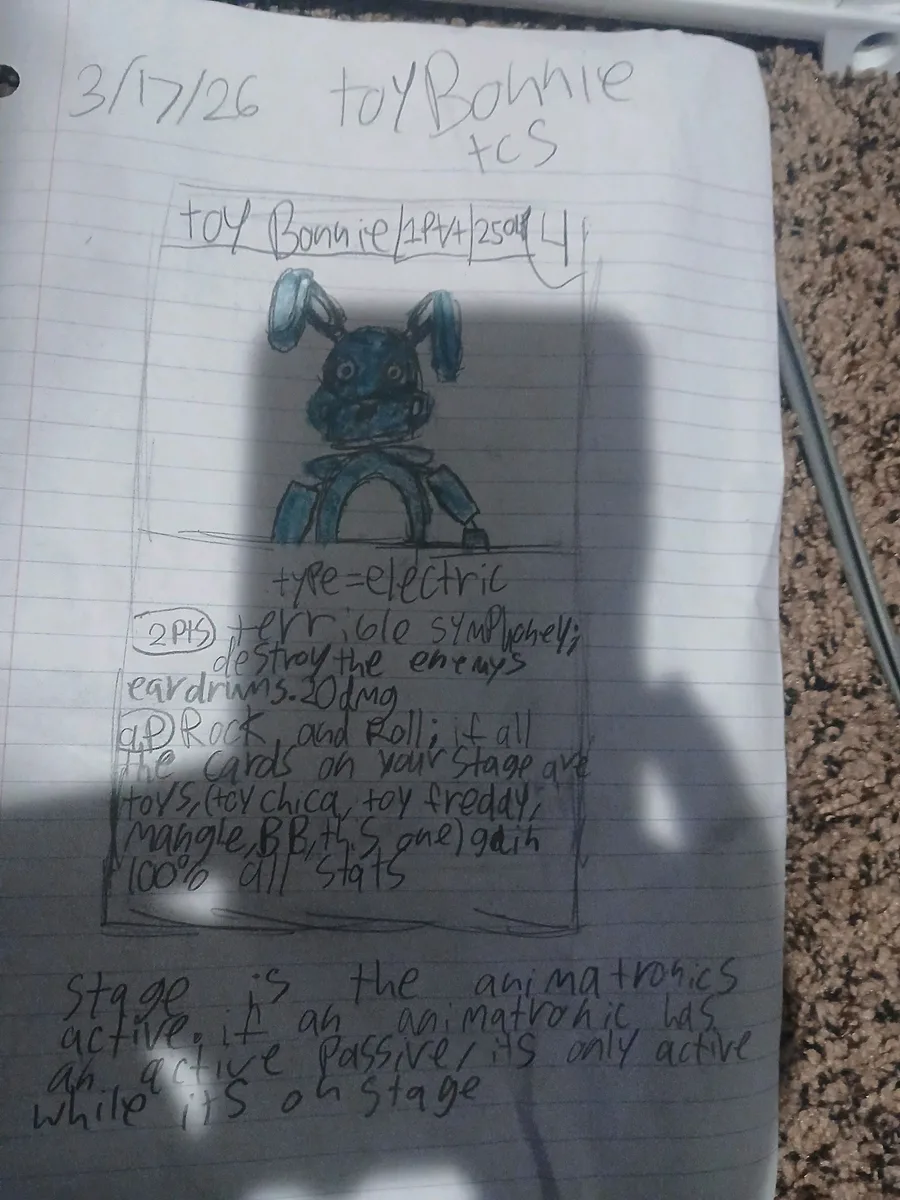 3/17/26 toy Bonnie
tcS
toy Bonnie 1Pt/t 250 4
type=electric
2Pts terrible symphoney;
destroy the enemys
eardrums. 20dmg
aP Rock and Roll; if all
the cards on your stage are
toys, (toy chica, toy freddy,
mangle, BB, this one) gain
100% all stats
Stage is the animatronics
active. if an animatronic has
an active passive, its only active
while its on stage